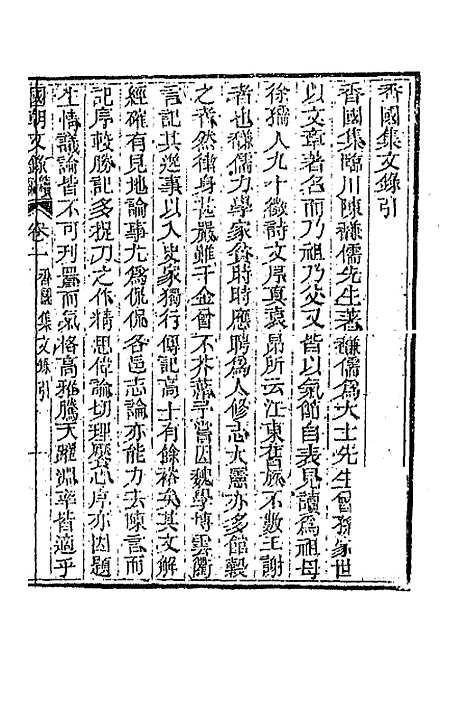 香國集文錄引
香國集臨川陳謙儒先生著謙儒為大士先生曾孫家世
以文章著名而乃祖乃父又皆以氣節自表見讀為祖母
徐孺人九十徵詩文序真袁昂所云江東舊族不數王謝
者也謙儒力學家貧時時應聘為人修志大憲亦多館穀
之者然律身甚嚴雖千金曾不芥蔕嘗因魏學博雲衢
言記其逸事以入史家獨行傳記高士有餘裕矣其文解
經確有見地論事尤為侃侃各邑志論亦能力去陳言而
記序較勝記多捉刀之作精思偉論切理饜心序亦因題
生情議論皆不可刋置而氣將高雅騰天躍淵卒皆適乎
國朝文錄 卷一 香國集文錄引 一